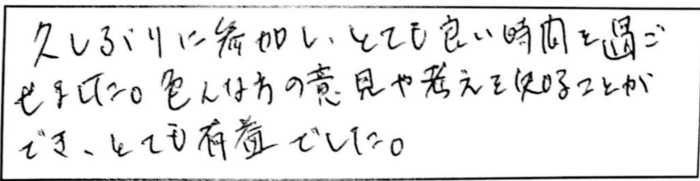 久しぶりに参加し、とても良い時間を過ご
せました。色んな方の意見や考えを知ることが
でき、とても有益でした。